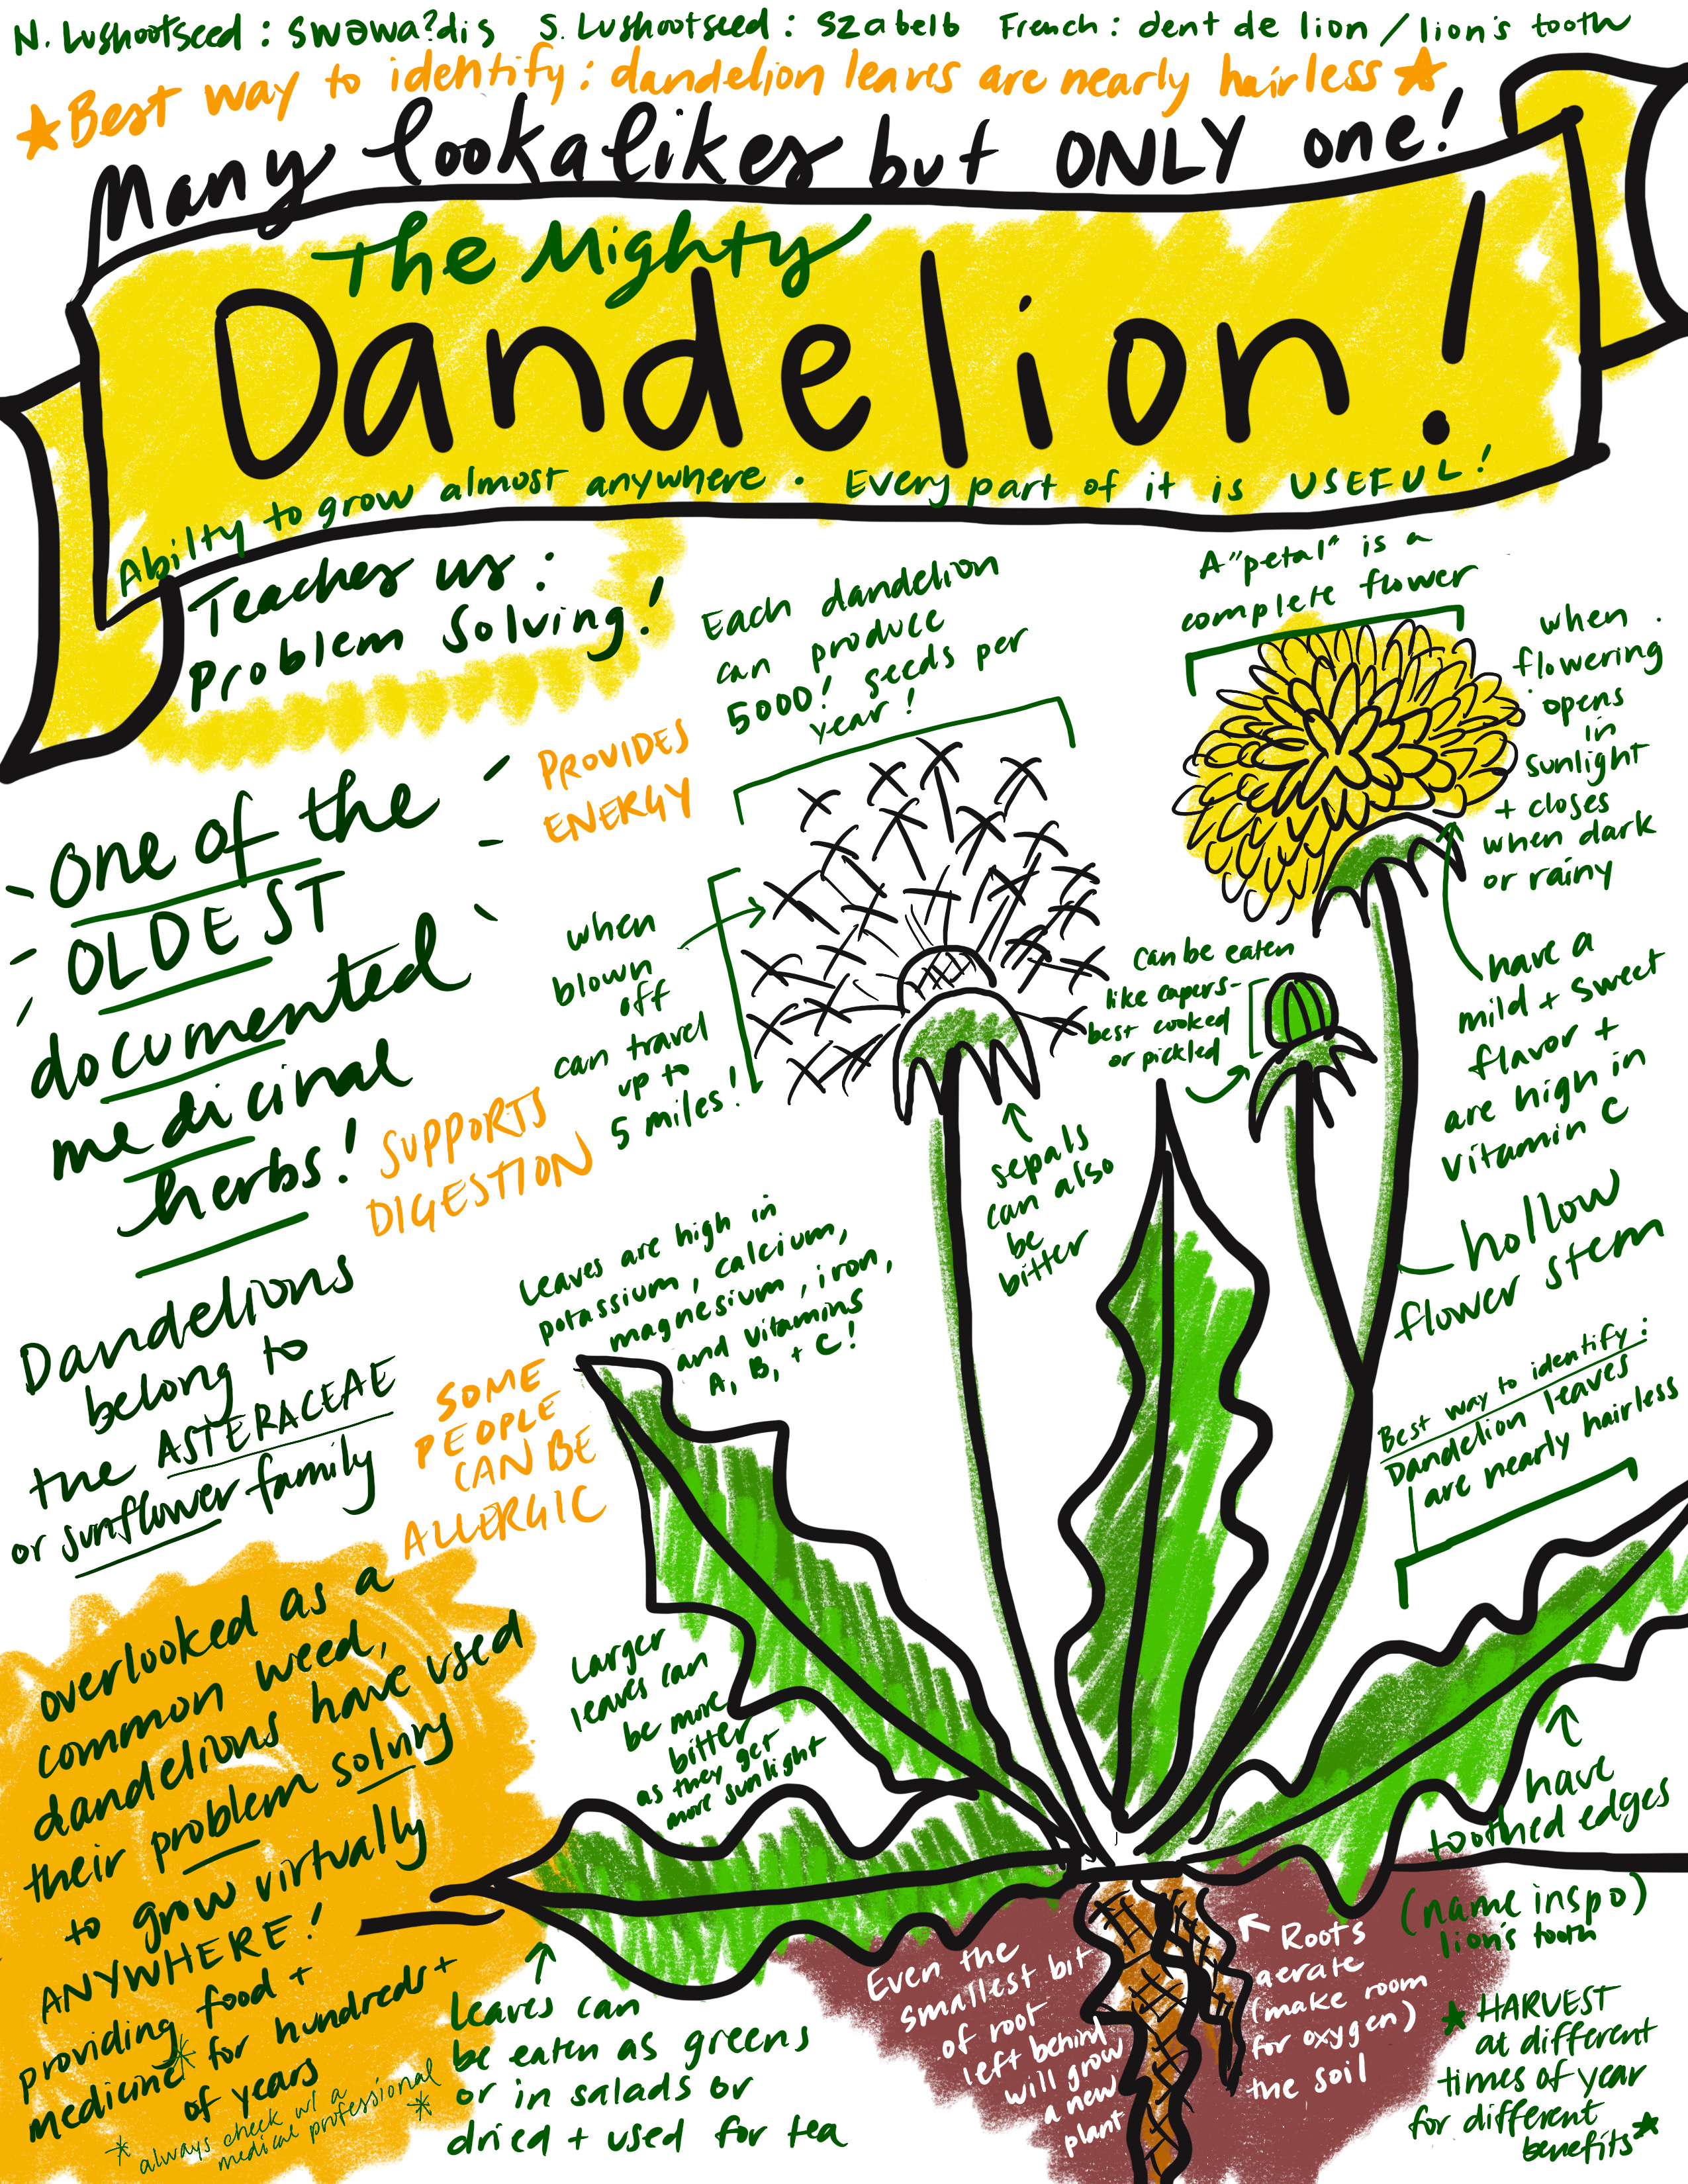 N. Lushootseed : swəwaʔdis   S. Lushootseed : szabelb   French : dent de lion / lion's tooth
★Best way to identify: dandelion leaves are nearly hairless★
Many lookalikes but ONLY one!
The Mighty
Dandelion!
Abilty to grow almost anywhere. Every part of it is USEFUL!
Teaches us:
Problem Solving!
Each dandelion
can produce
5000! seeds per
year!
A "petal" is a
complete flower
when
flowering
opens
in
sunlight
+ closes
when dark
or rainy
PROVIDES
ENERGY
one of the
OLDEST
documented
medicinal
herbs!
when
blown
off
can travel
up to
5 miles!
Can be eaten
like capers-
best cooked
or pickled
have a
mild + sweet
flavor +
are high in
vitamin C
SUPPORTS
DIGESTION
sepals
can also
be
bitter
hollow
flower stem
Leaves are high in
potassium, calcium,
magnesium, iron,
and vitamins
A, B, + C!
Dandelions
belong to
the ASTERACEAE
or sunflower family
SOME
PEOPLE
CAN BE
ALLERGIC
Best way to identify:
Dandelion leaves
are nearly hairless
overlooked as a
common weed,
dandelions have used
their problem solving
to grow virtually
ANYWHERE!
providing food +
medicine* for hundreds+
of years
* always check w/ a
medical professional *
Larger
leaves can
be more
bitter
as they get
more sunlight
have
toothed edges
(name inspo)
lion's tooth
Leaves can
be eaten as greens
or in salads or
dried + used for tea
Even the
smallest bit
of root
left behind
will grow
a new
plant
Roots
aerate
(make room
for oxygen)
the soil
★ HARVEST
at different
times of year
for different
benefits★